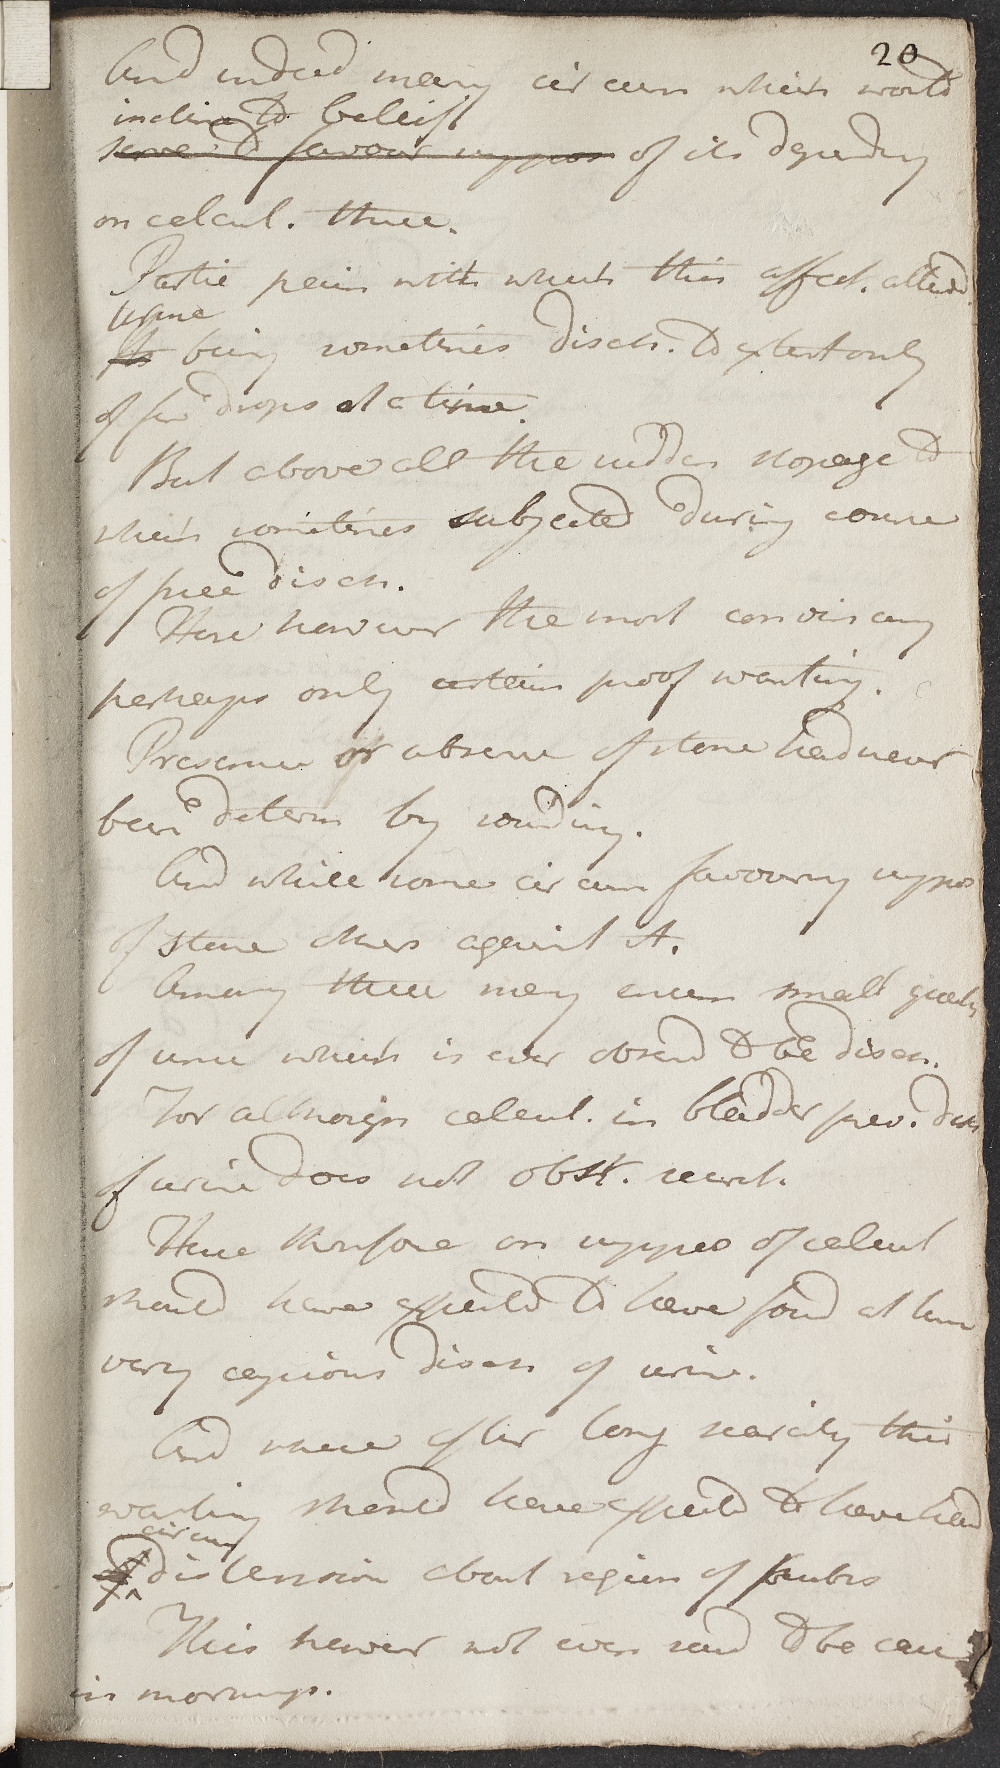 20
And indeed many circum which would
incline to belief
serve to favour suppos of its depending
on calcul. these.
Partic pain with which this affect. attend
urine
Its being sometimes disch. to extent only
of few drops at a time.
But above all the sudden stopage to
which sometimes subjected during course
of free disch.
Here however the most convincing
perhaps only certain proof wanting.
Presence or absence of stone had never
been determ by sounding.
And while some circum favouring suppos
of stone others against it.
Among these may enum small quantity
of urine which is ever observd to be disch.
For although calcul. in bladder prev. disch
of urine does not obstr. secret.
Here therefore on suppos of calcul
should have expected to have found at times
very copious disch of urine.
And where after long scarcity this
wanting should have expected to have had
circum
of distension about region of pubis
This however not even said to be case
in mornings.